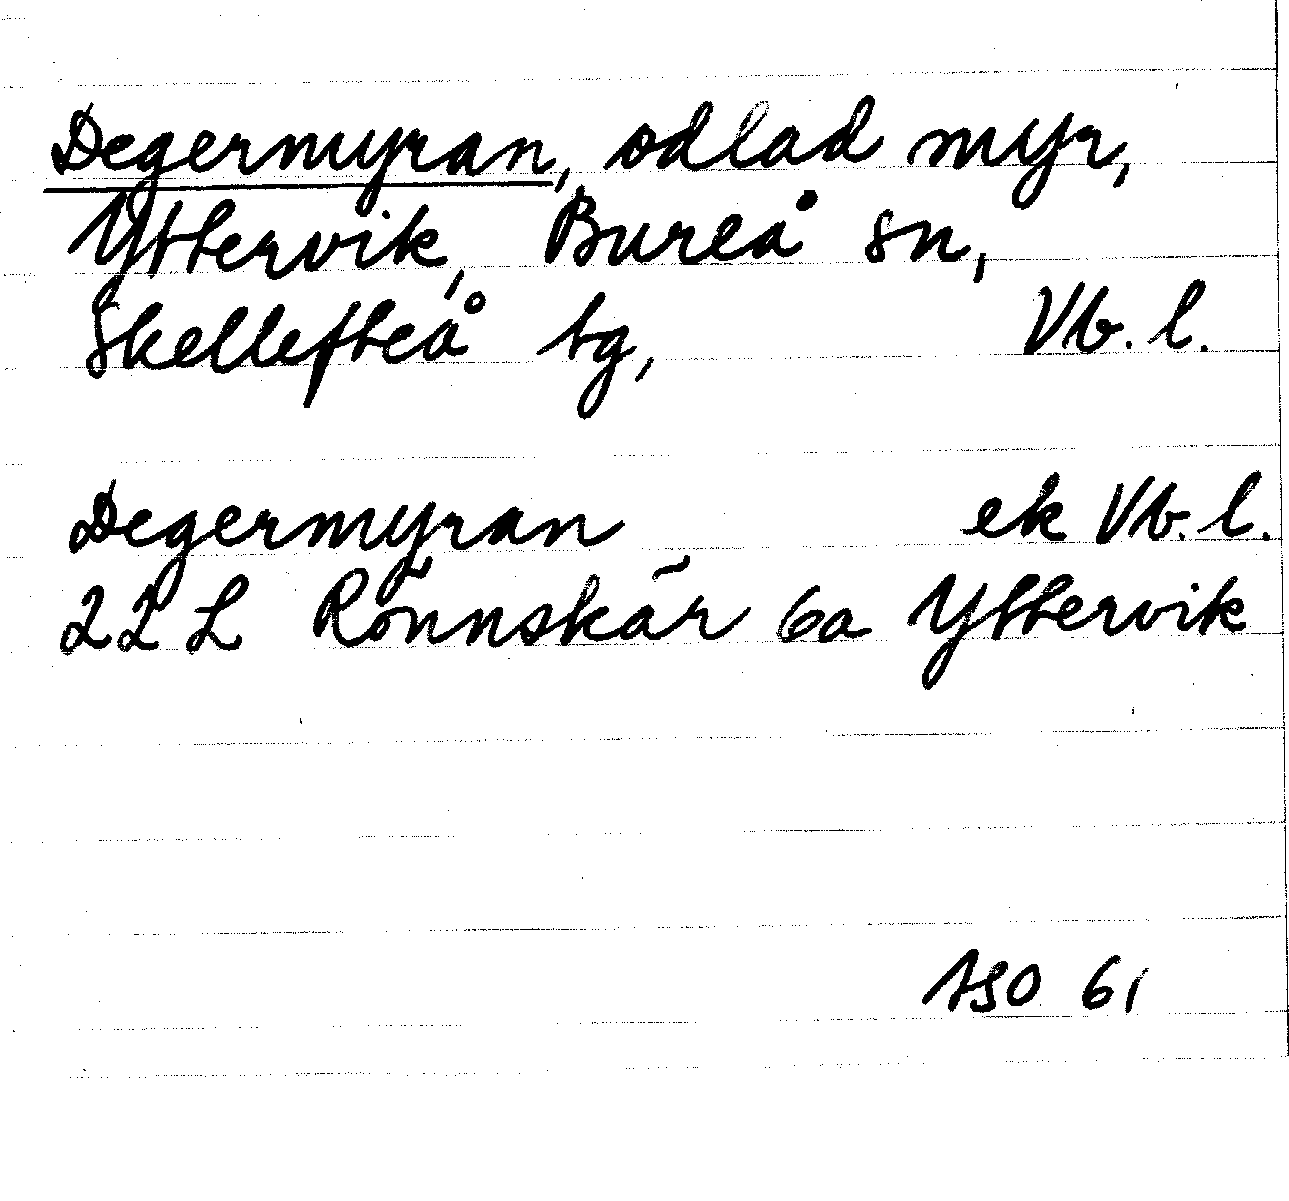 Degermyran, odlad myr,
Yttervik, Bureå sn,
Skellefteå tg, Vb. l.
Degermyran ek Vb. l.
22 L Rönnskär 6a Yttervik
ASO 61